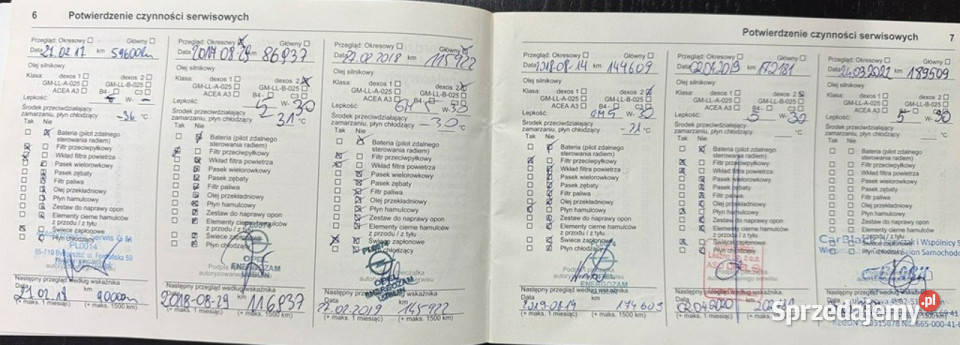 6 Potwierdzenie czynności serwisowych
Przegląd: Okresowy Główny
Data 21.02.17 km 59600
Olej silnikowy
Klasa: dexos 1 dexos 2
GM-LL-A-025 GM-LL-B-025
ACEA A3 B4- C3
Lepkość: W-
Środek przeciwdziałający
zamarzaniu, płyn chłodzący -36 °C
Tak Nie
Bateria (pilot zdalnego
sterowania radiem)
Filtr przeciwpyłkowy
Wkład filtra powietrza
Pasek wielorowkowy
Pasek zębaty
Filtr paliwa
Olej przekładniowy
Płyn hamulcowy
Zestaw do naprawy opon
Elementy cierne hamulców
z przodu / z tyłu
Świece zapłonowe
Płyn chłodzący
Następny przegląd według wskaźnika
Data km
(+ maks. 1 miesiąc) (+ maks. 1500 km)
Przegląd: Okresowy Główny
Data 2017-08-29 km 86937
Olej silnikowy
Klasa: dexos 1 dexos 2
GM-LL-A-025 GM-LL-B-025
ACEA A3 B4- C3
Lepkość: 5 W-30
Środek przeciwdziałający
zamarzaniu, płyn chłodzący -31 °C
Tak Nie
Bateria (pilot zdalnego
sterowania radiem)
Filtr przeciwpyłkowy
Wkład filtra powietrza
Pasek wielorowkowy
Pasek zębaty
Filtr paliwa
Olej przekładniowy
Płyn hamulcowy
Zestaw do naprawy opon
Elementy cierne hamulców
z przodu / z tyłu
Świece zapłonowe
Płyn chłodzący
OPEL
ENERGOZAM
Następny przegląd według wskaźnika
Data 2018-08-29 km 116937
(+ maks. 1 miesiąc) (+ maks. 1500 km)
Przegląd: Okresowy Główny
Data 22.02.2018 km 115922
Olej silnikowy
Klasa: dexos 1 dexos 2
GM-LL-A-025 GM-LL-B-025
ACEA A3 B4- C3
Lepkość:
Środek przeciwdziałający
zamarzaniu, płyn chłodzący -30 °C
Tak Nie
Bateria (pilot zdalnego
sterowania radiem)
Filtr przeciwpyłkowy
Wkład filtra powietrza
Pasek wielorowkowy
Pasek zębaty
Filtr paliwa
Olej przekładniowy
Płyn hamulcowy
Zestaw do naprawy opon
Elementy cierne hamulców
z przodu / z tyłu
Świece zapłonowe
Płyn chłodzący
OPEL
ENERGOZAM
Następny przegląd według wskaźnika
Data 22.02.2019 km 145922
(+ maks. 1 miesiąc) (+ maks. 1500 km)
Potwierdzenie czynności serwisowych 7
Przegląd: Okresowy Główny
Data 2018-08-14 km 144609
Olej silnikowy
Klasa: dexos 1 dexos 2
GM-LL-A-025 GM-LL-B-025
ACEA A3 B4- C3
Lepkość: 5 W-30
Środek przeciwdziałający
zamarzaniu, płyn chłodzący °C
Tak Nie
Bateria (pilot zdalnego
sterowania radiem)
Filtr przeciwpyłkowy
Wkład filtra powietrza
Pasek wielorowkowy
Pasek zębaty
Filtr paliwa
Olej przekładniowy
Płyn hamulcowy
Zestaw do naprawy opon
Elementy cierne hamulców
z przodu / z tyłu
Świece zapłonowe
Płyn chłodzący
OPEL
ENERGOZAM
Następny przegląd według wskaźnika
Data km 174609
(+ maks. 1 miesiąc) (+ maks. 1500 km)
Przegląd: Okresowy Główny
Data 02.04.2019 km 172181
Olej silnikowy
Klasa: dexos 1 dexos 2
GM-LL-A-025 GM-LL-B-025
ACEA A3 B4- C3
Lepkość: 5 W-30
Środek przeciwdziałający
zamarzaniu, płyn chłodzący °C
Tak Nie
Bateria (pilot zdalnego
sterowania radiem)
Filtr przeciwpyłkowy
Wkład filtra powietrza
Pasek wielorowkowy
Pasek zębaty
Filtr paliwa
Olej przekładniowy
Płyn hamulcowy
Zestaw do naprawy opon
Elementy cierne hamulców
z przodu / z tyłu
Świece zapłonowe
Płyn chłodzący
Następny przegląd według wskaźnika
Data 02.04.2020 km
(+ maks. 1 miesiąc) (+ maks. 1500 km)
Przegląd: Okresowy Główny
Data km 189509
Olej silnikowy
Klasa: dexos 1 dexos 2
GM-LL-A-025 GM-LL-B-025
ACEA A3 B4- C3
Lepkość: 5 W-30
Środek przeciwdziałający
zamarzaniu, płyn chłodzący °C
Tak Nie
Bateria (pilot zdalnego
sterowania radiem)
Filtr przeciwpyłkowy
Wkład filtra powietrza
Pasek wielorowkowy
Pasek zębaty
Filtr paliwa
Olej przekładniowy
Płyn hamulcowy
Zestaw do naprawy opon
Elementy cierne hamulców
z przodu / z tyłu
Świece zapłonowe
Następny przegląd według wskaźnika
Sprzedajemy.pl